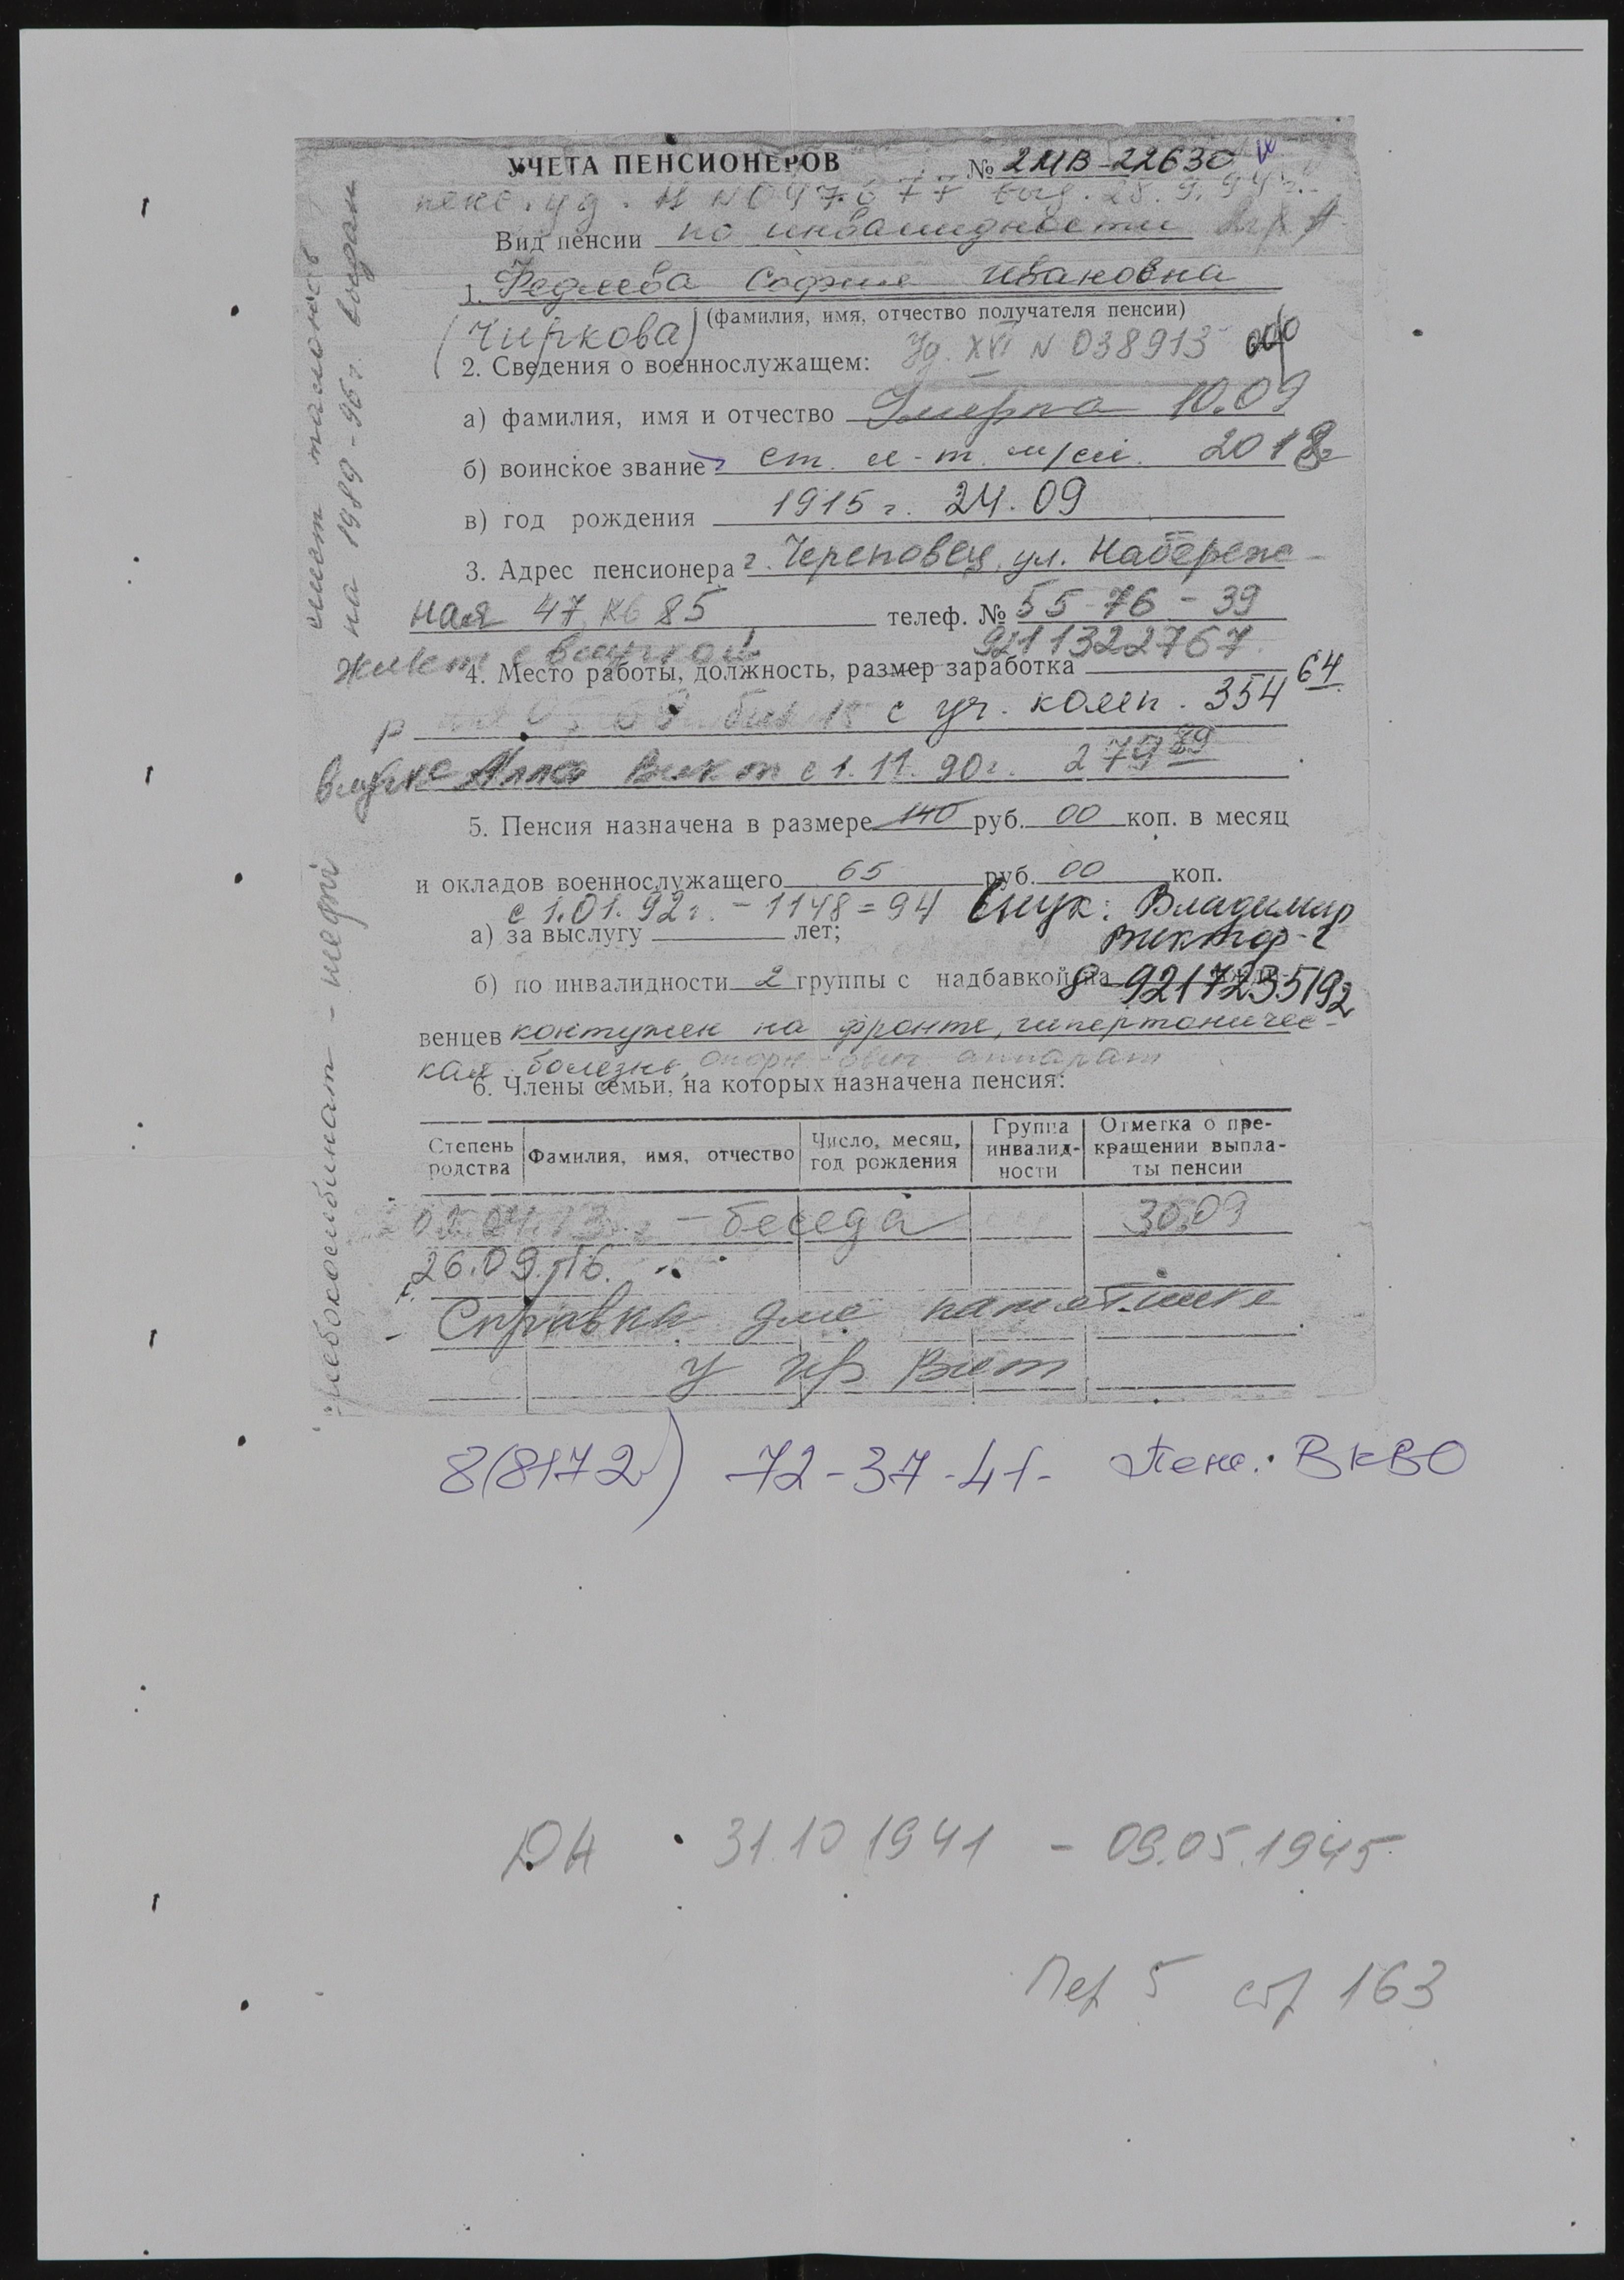 УЧЕТА ПЕНСИОНЕРОВ № 2МВ-22630
пенс. уд. выд. 28.9.94 г.
Вид пенсии по инвалидности
1. Федяева София Ивановна
(Чиркова) (фамилия, имя, отчество получателя пенсии)
2. Сведения о военнослужащем: Уд. XVI N 038913
а) фамилия, имя и отчество Умерла 10.09
б) воинское звание ст. л-т. м/сл. 2018г
в) год рождения 1915 г. 24.09
3. Адрес пенсионера г. Череповец, ул. Набереж-
ная 47, кв 85 телеф. № 55-76-39
живет с внучкой 9211322767
4. Место работы, должность, размер заработка
с уч. компен. 354 64
внучка Алла Викт с 1.11.90г. 279 89
5. Пенсия назначена в размере 140 руб. 00 коп. в месяц
и окладов военнослужащего 65 руб. 00 коп.
с 1.01.92г. - 1148=94 Внук: Владимир
Виктор-ч
а) за выслугу лет;
б) по инвалидности 2 группы с надбавкой на 8-9217235192
венцев контужен на фронте, гипертоничес-
кая болезнь, опорн-двиг. аппарат
6. Члены семьи, на которых назначена пенсия:
Степень родства Фамилия, имя, отчество Число, месяц, год рождения Группа инвалидности Отметка о прекращении выплаты пенсии
04.13 г - беседа 30.09
26.09.16.
Справка для памятника
у Вист
имеет талоность
на 1989-96 г. выдан
хлебокомбинат - шефы
8(8172) 72-37-41- Пенс. ВКВО
ДА 31.10 1941 - 09.05.1945
Пер 5 стр 163